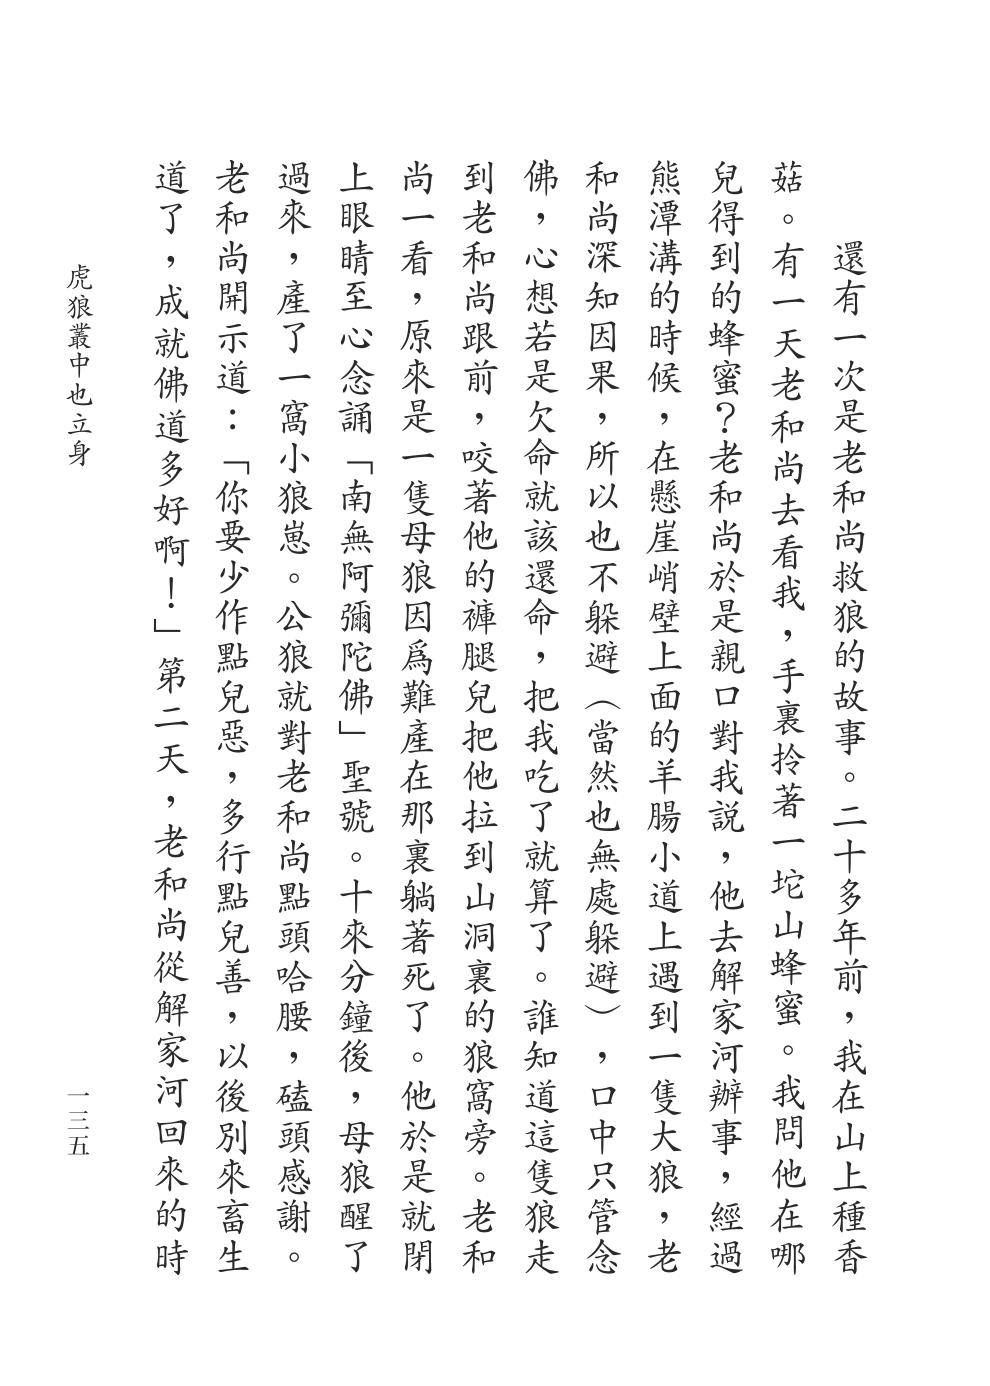 還有一次是老和尚救狼的故事。二十多年前，我在山上種香
菇。有一天老和尚去看我，手裏拎著一坨山蜂蜜。我問他在哪
兒得到的蜂蜜？老和尚於是親口對我說，他去解家河辦事，經過
熊潭溝的時候，在懸崖峭壁上面的羊腸小道上遇到一隻大狼，老
和尚深知因果，所以也不躲避（當然也無處躲避），口中只管念
佛，心想若是欠命就該還命，把我吃了就算了。誰知道這隻狼走
到老和尚跟前，咬著他的褲腿兒把他拉到山洞裏的狼窩旁。老和
尚一看，原來是一隻母狼因爲難產在那裏躺著死了。他於是就閉
上眼睛至心念誦「南無阿彌陀佛」聖號。十來分鐘後，母狼醒了
過來，產了一窩小狼崽。公狼就對老和尚點頭哈腰，磕頭感謝。
老和尚開示道：「你要少作點兒惡，多行點兒善，以後別來畜生
道了，成就佛道多好啊！」第二天，老和尚從解家河回來的時
虎狼叢中也立身
一三五